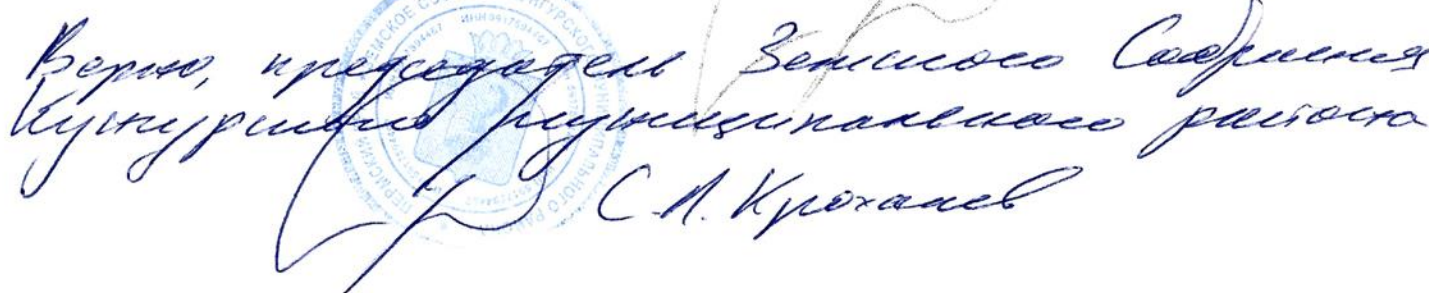 Верно, председатель Земского Собрания
Кунгурского муниципального района
С.Л. Крохалев